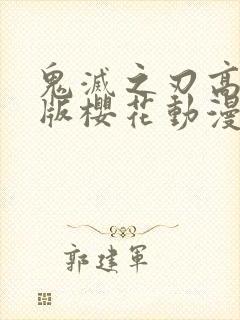 鬼滅之刃高
版櫻花動漫
郭建軍